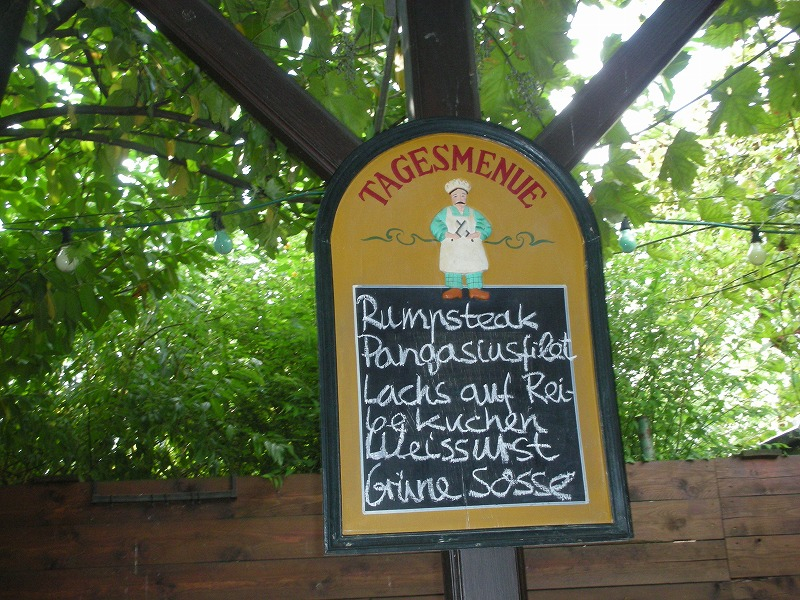 TAGESMENUE
Rumpsteak
Pangasiusfilet
Lachs auf Rei-
bekuchen
Weisswurst
Grüne Sosse